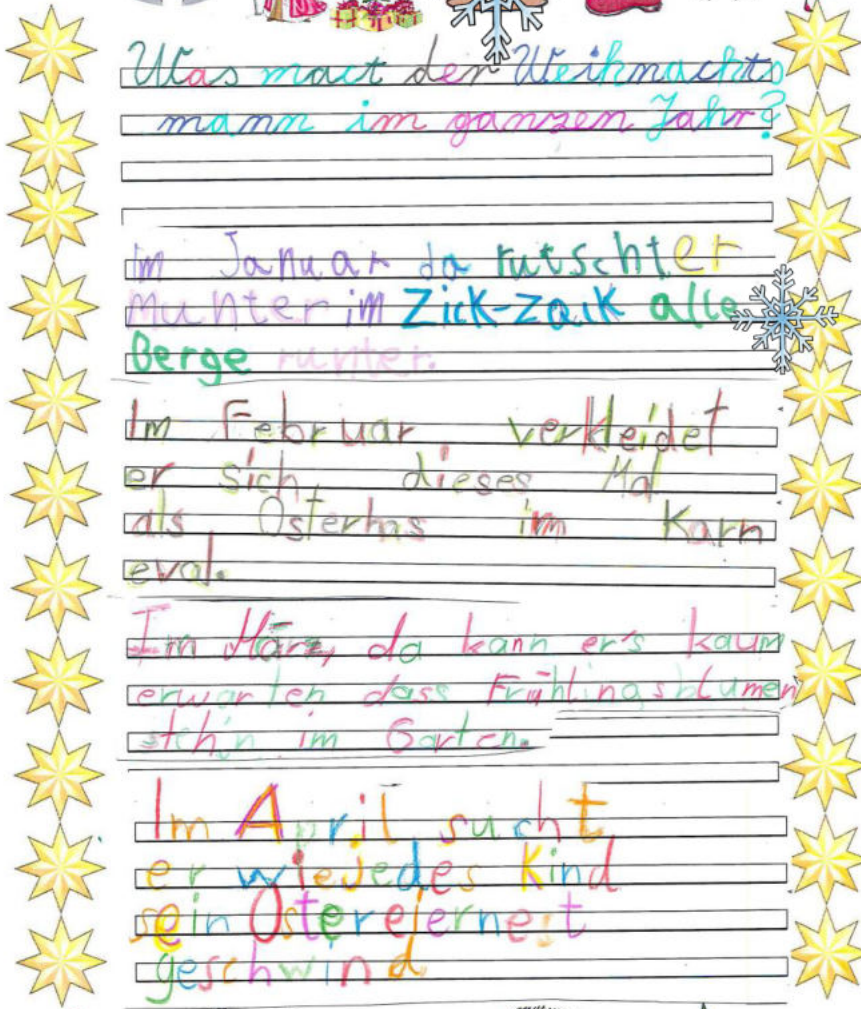 Was mact der Weihnachts
mann im ganzen Jahr?
im Januar da rutscht er
munter im Zick-Zack alle
Berge runter.
Im Februar verkleidet
er sich dieses Mal
als Osterhas im Karn
eval.
Im März, da kann er's kaum
erwarten dass Frühlingsblumen
steh'n im Garten.
Im April sucht
er wie jedes Kind
sein Ostereiernest
geschwind